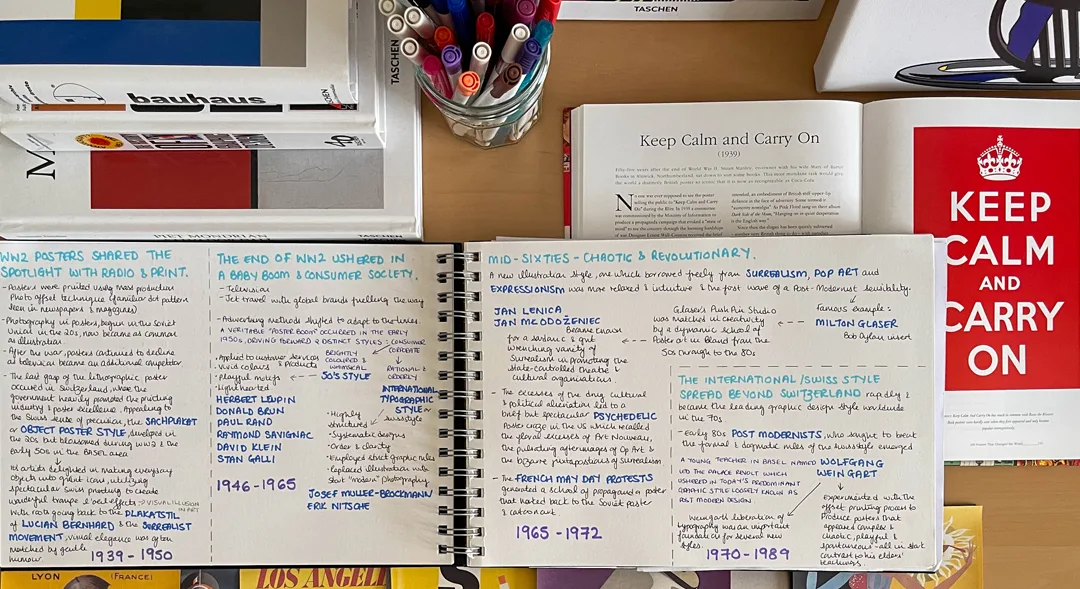 TASCHEN
TASCHEN
bauhaus
M
PIET MONDRIAN
Keep Calm and Carry On
(1939)
KEEP
CALM
AND
CARRY
ON
WW2 POSTERS SHARED THE
SPOTLIGHT WITH RADIO & PRINT.
- Posters were printed using mass production
Photo offset techniques (familiar dot pattern
seen in newspapers & magazines)
- Photography in posters, begun in the Soviet
Union in the 20s, now became as common
as illustration
- After the war, posters continued to decline
as television became an additional competitor
- The last gasp of the lithographic poster
occured in Switzerland, where the
government heavily promoted the printing
industry & poster excellence. Appealing to
the Swiss sense of precision, the SACHPLAKAT
or OBJECT POSTER STYLE developed in
the 20s but blossomed during WW2 & the
early 50s in the BASEL area
artists delighted in making everyday
objects into giant icons, utilizing
spectacular Swiss printing to create
wonderful trompe l'oeil effects VISUAL ILLUSION
IN ART
With roots going back to the PLAKATSTIL
of LUCIAN BERNHARD & the SURREALIST
MOVEMENT, visual elegance was often
matched by gentle
humour
1939 - 1950
THE END OF WW2 USHERED IN
A BABY BOOM & CONSUMER SOCIETY.
- Television
- Jet travel with global brands fuelling the way
- Advertising methods shifted to adapt to the times
A VERITABLE "POSTER BOOM" OCCURRED IN THE EARLY
1950s, DRIVING FORWARD 2 DISTINCT STYLES: CONSUMER
CORPORATE
- Applied to customer services
& products
- Vivid colours
- Playful motifs
- Lighthearted
BRIGHTLY
COLOURED &
WHIMSICAL
50'S STYLE
RATIONAL &
ORDERLY
INTERNATIONAL
TYPOGRAPHIC
STYLE or
swiss style
HERBERT LEUPIN
DONALD BRUN
PAUL RAND
RAYMOND SAVIGNAC
DAVID KLEIN
STAN GALLI
1946 - 1965
- Highly
structured
- Systematic designs
- Order & clarity
- Employed strict graphic rules
- Replaced illustration with
stark "modern" photography
JOSEF MULLER-BROCKMANN
ERIK NITSCHE
MID-SIXTIES - CHAOTIC & REVOLUTIONARY.
A new illustration style, one which borrowed freely from SURREALISM, POP ART and
EXPRESSIONISM was more relaxed & intuitive & the first wave of a Post-Modernist sensibility.
JAN LENICA
JAN MŁODOŻENIEC
Became known
for a sardonic & gut
wrenching variety of
Surrealism in promoting the
state-controlled theatre &
cultural organisations.
Glaser's Push Pin Studio
was matched in creativity
by a dynamic school of
Poster art in Poland from the
50s through to the 80s
Famous example:
MILTON GLASER
Bob Dylan insert
- The excesses of the drug cultural
& political alienation led to a
brief but spectacular PSYCHEDELIC
Poster craze in the US which recalled
the floral excesses of Art Nouveau,
the pulsating afterimages of Op Art &
the bizarre juxtapositions of Surrealism
- The FRENCH MAY DAY PROTESTS
generated a school of propaganda poster
that harked back to the Soviet poster
& cartoon art
1965 - 1972
THE INTERNATIONAL/SWISS STYLE
SPREAD BEYOND SWITZERLAND rapidly &
became the leading graphic design style worldwide
in the 70s
- Early 80s POST MODERNISTS, who sought to break
the formal & dogmatic rules of the Swiss style emerged
A YOUNG TEACHER IN BASEL NAMED WOLFGANG
WEINGART
LED THE PALACE REVOLT WHICH
USHERED IN TODAY'S PREDOMINANT
GRAPHIC STYLE LOOSELY KNOWN AS
POST MODERN DESIGN
Weingart's liberation of
typography was an important
foundation for several new
styles.
Experimented with the
offset printing process to
Produce posters that
appeared complex &
chaotic, playful &
spontaneous - all in stark
contrast to his elders'
teachings.
1970 - 1989
LYON (FRANCE)
LOS ANGELES